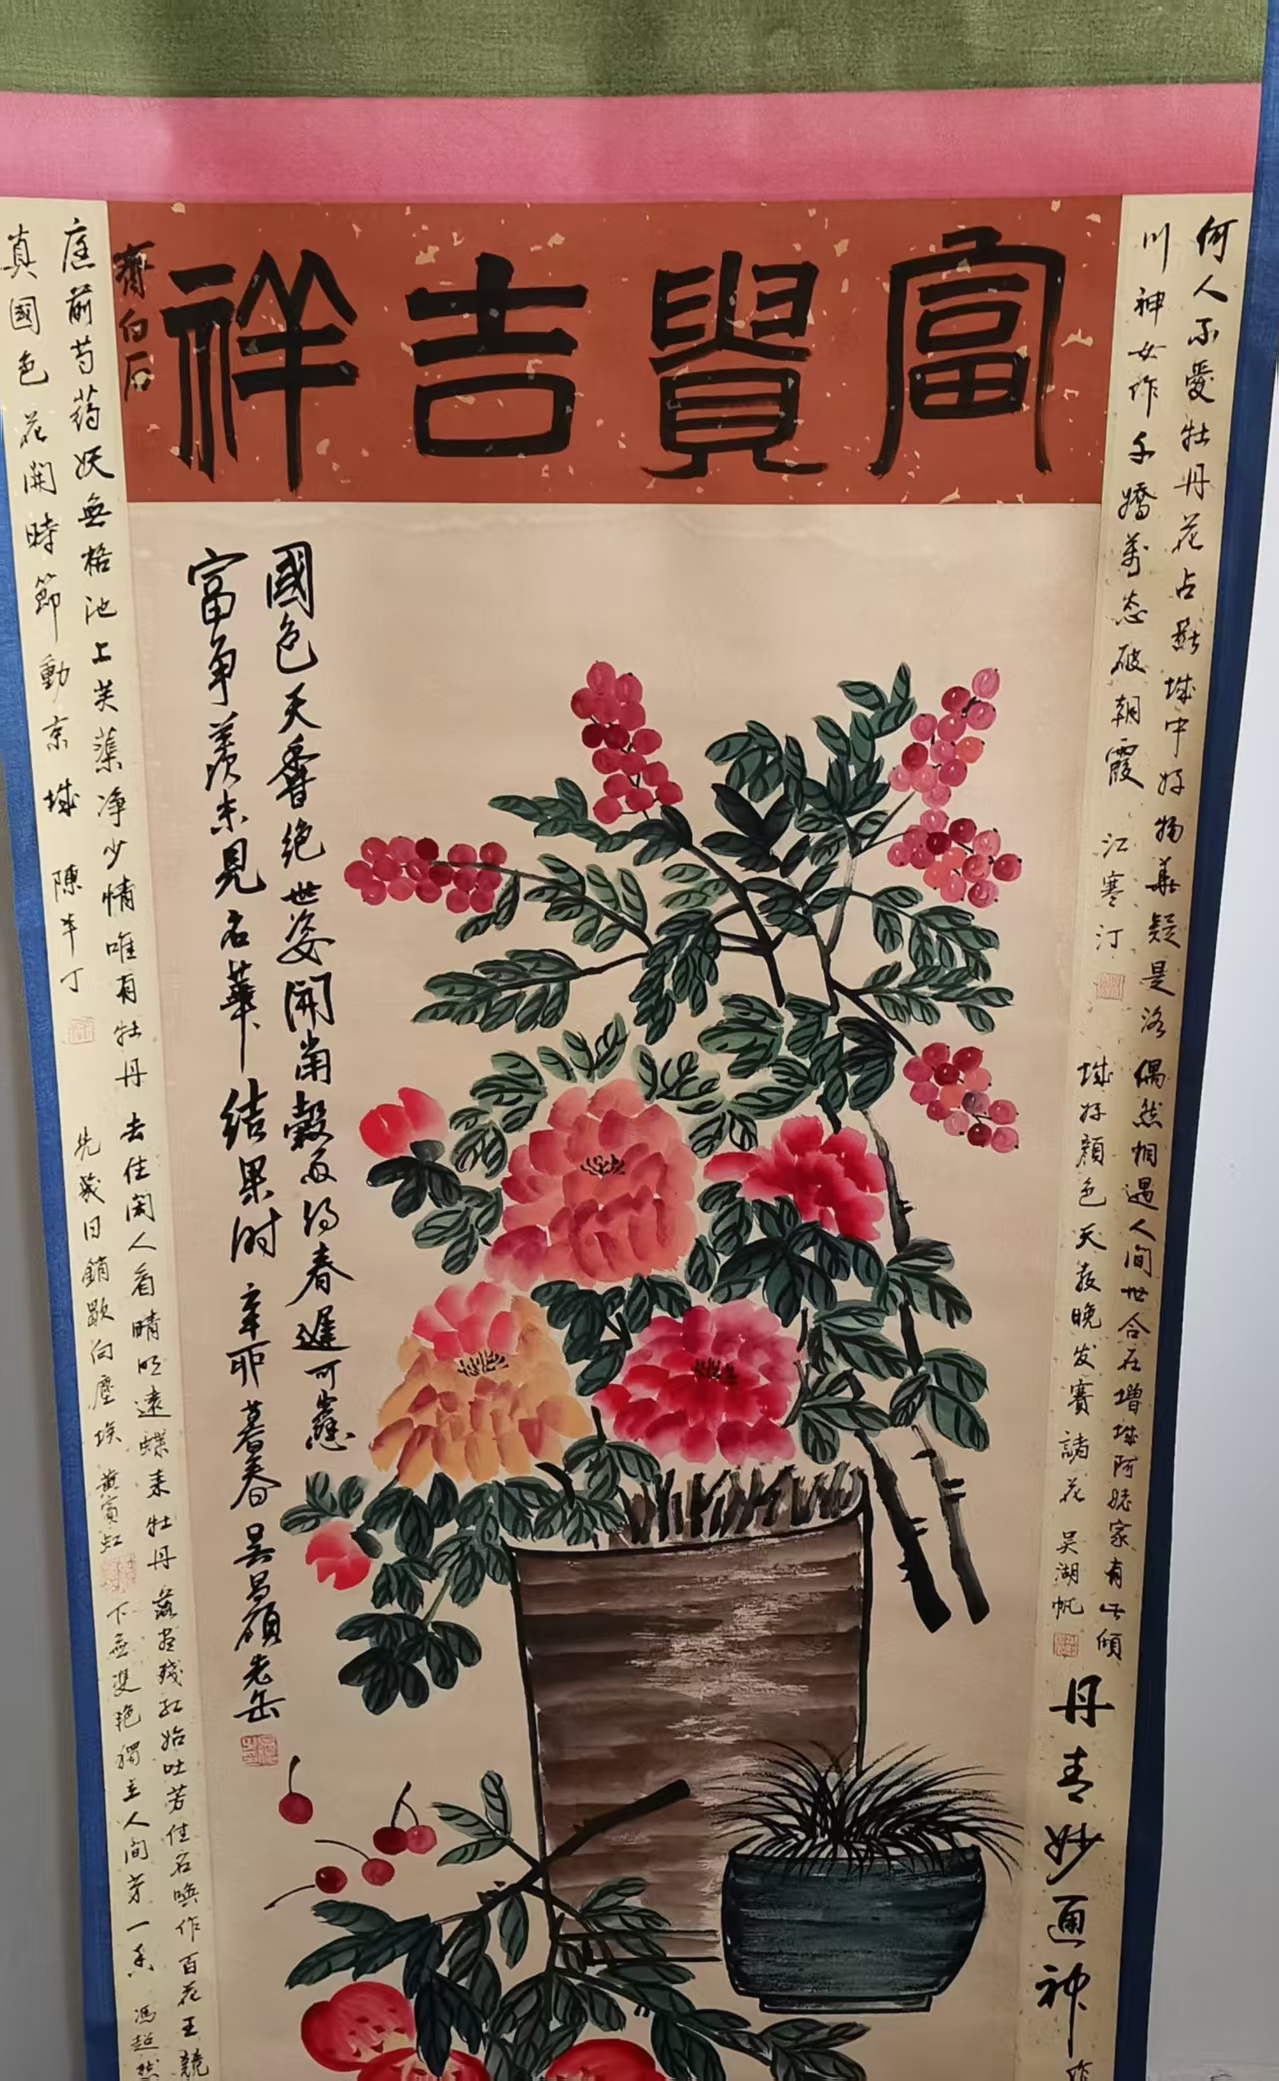 富貴吉祥
齊白石
何人不愛牡丹花占斷城中好物華疑是洛
川神女作千嬌萬态破朝霞 江寒汀
偶然相遇人间世合在增城阿姥家有此倾
城好顏色天教晚发賽諸花 吴湖帆
丹青妙通神
國色天香絕世姿開當穀雨得春遲可應
富争羡未見名華結果时 辛卯暮春吴昌碩老缶
庭前芍药妖無格池上芙蕖净少情唯有牡丹
真國色花開時節動京城 陳半丁
去住闲人看晴明遠蝶来牡丹
先幾日銷歇向塵埃 黄賓虹
落尽残红始吐芳佳名唤作百花王競
下無雙艳獨立人间第一香 馮超然